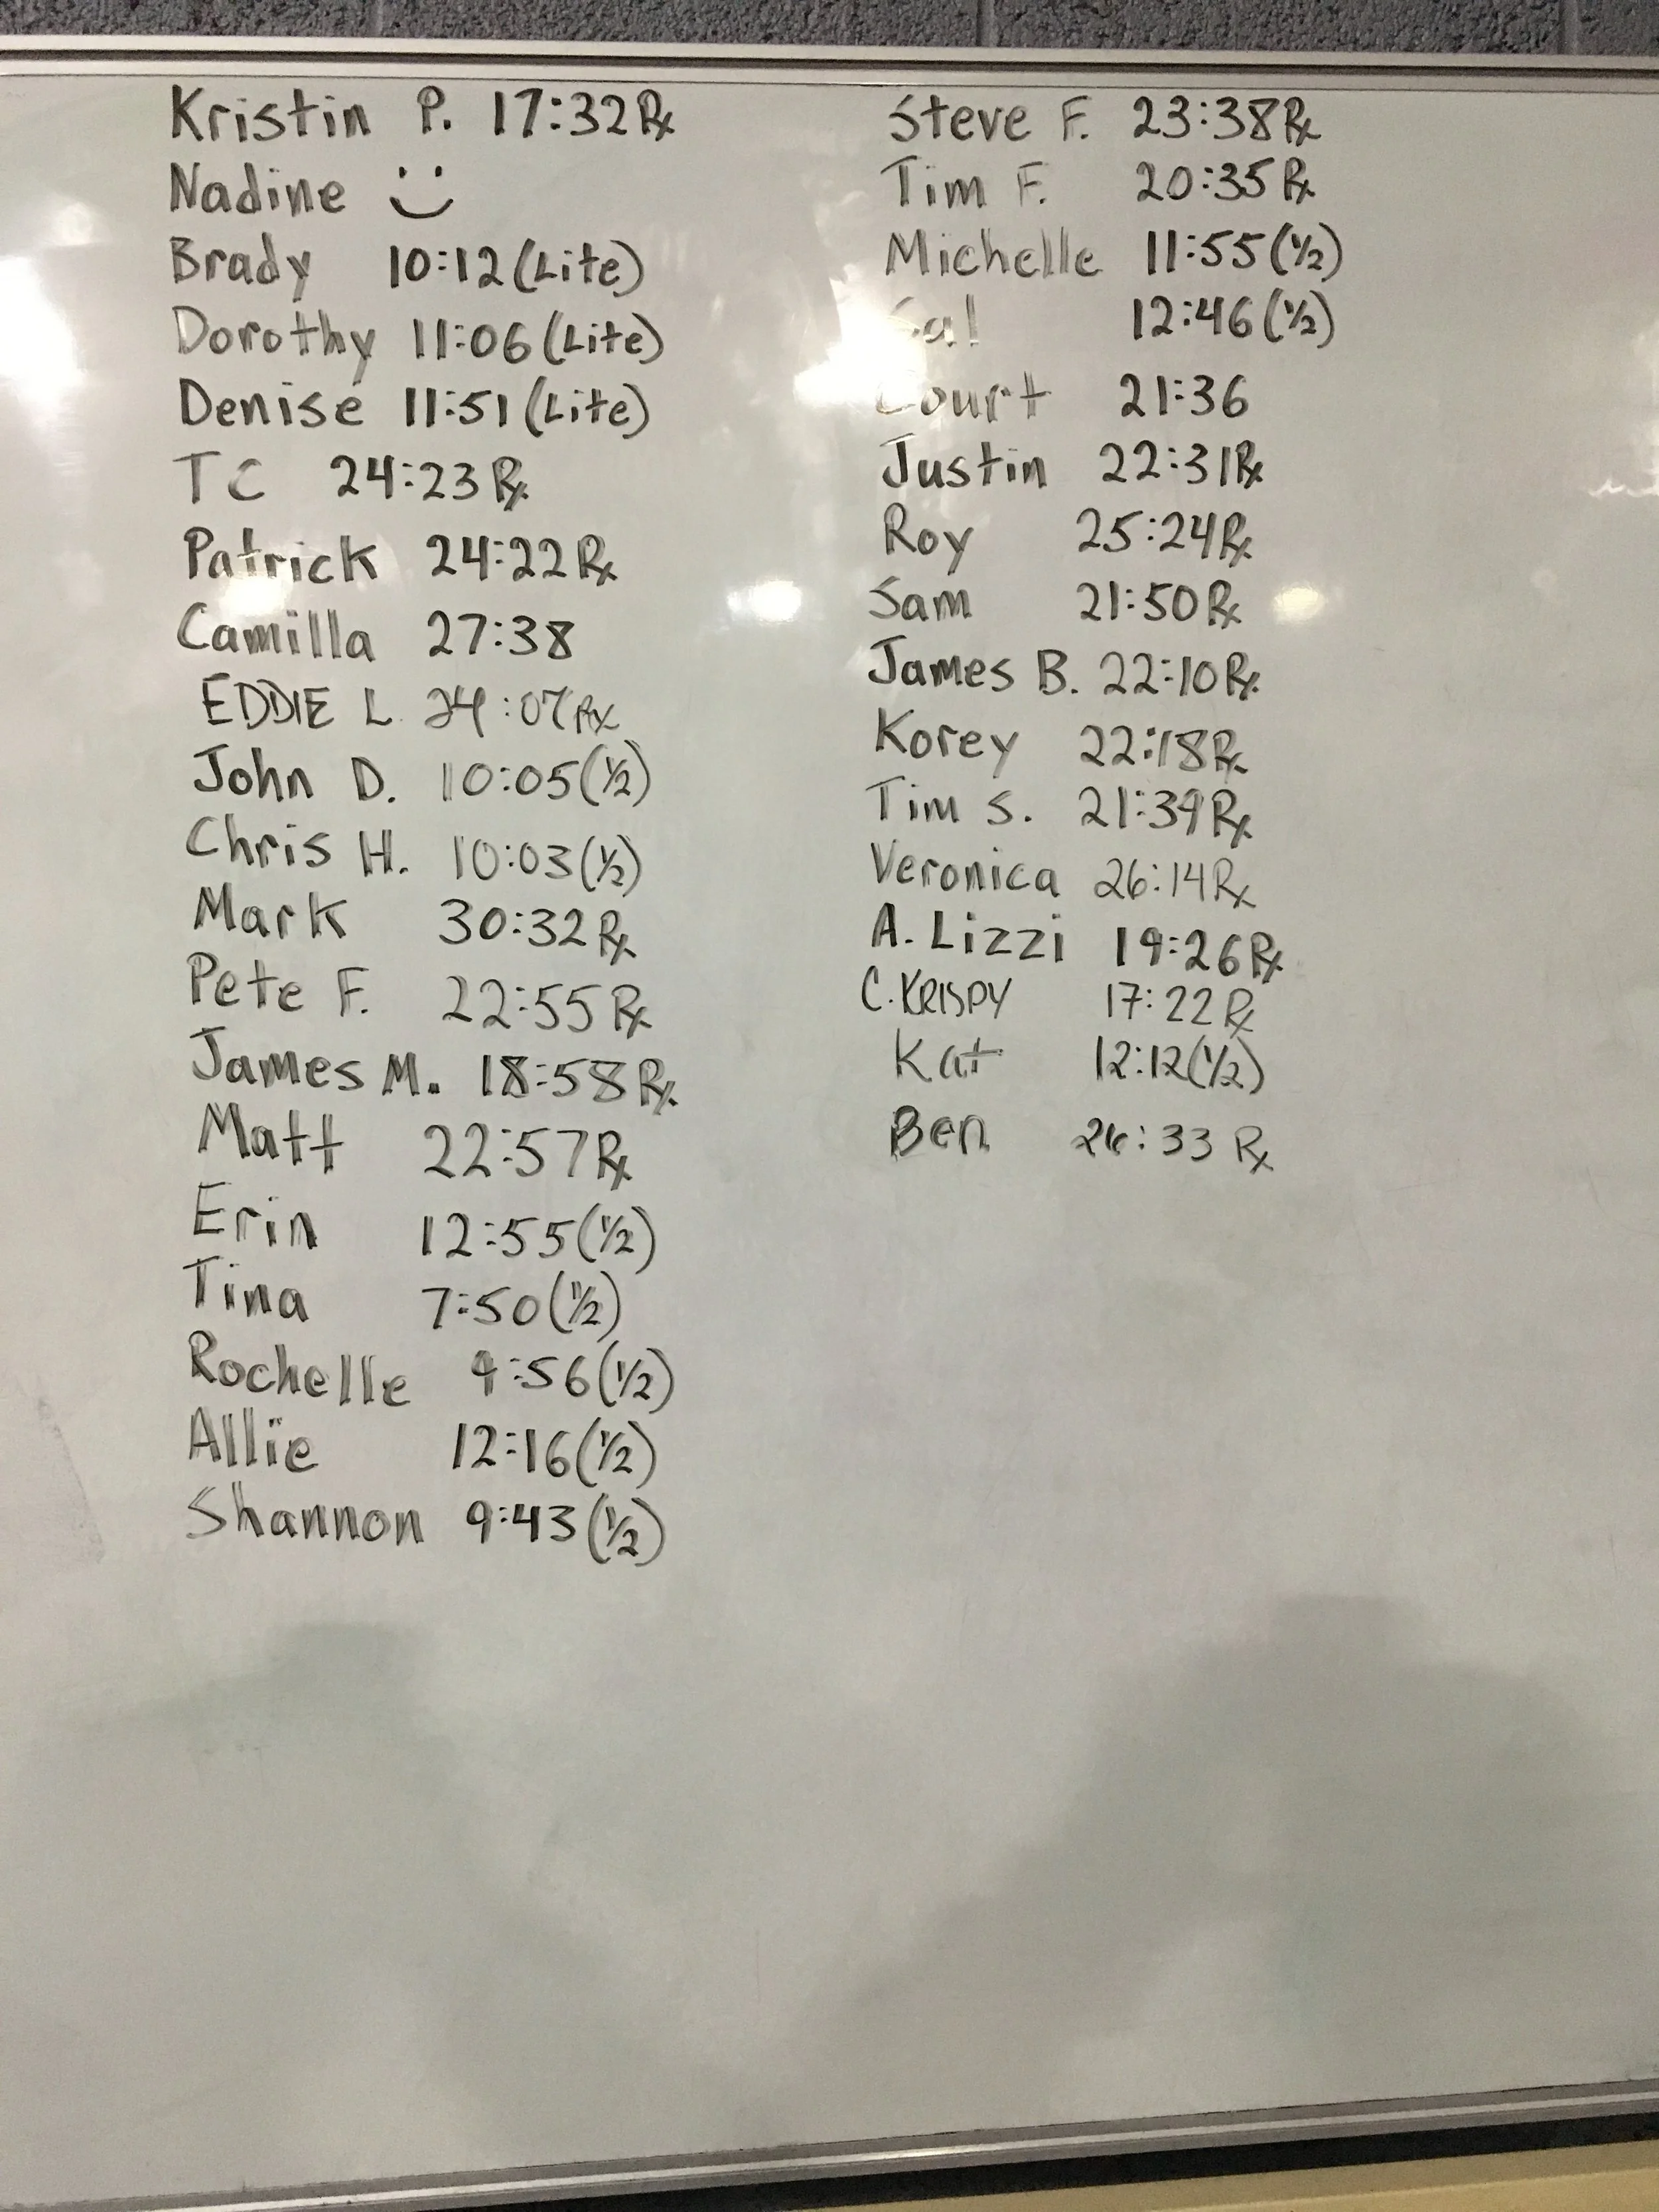 Kristin P. 17:32 Rx
Nadine :)
Brady 10:12 (Lite)
Dorothy 11:06 (Lite)
Denise 11:51 (Lite)
TC 24:23 Rx
Patrick 24:22 Rx
Camilla 27:38
EDDIE L. 24:07 Rx
John D. 10:05 (1/2)
Chris H. 10:03 (1/2)
Mark 30:32 Rx
Pete F. 22:55 Rx
James M. 18:58 Rx
Matt 22:57 Rx
Erin 12:55 (1/2)
Tina 7:50 (1/2)
Rochelle 9:56 (1/2)
Allie 12:16 (1/2)
Shannon 9:43 (1/2)
Steve F. 23:38 Rx
Tim F. 20:35 Rx
Michelle 11:55 (1/2)
12:46 (1/2)
Court 21:36
Justin 22:31 Rx
Roy 25:24 Rx
Sam 21:50 Rx
James B. 22:10 Rx
Korey 22:18 Rx
Tim S. 21:39 Rx
Veronica 26:14 Rx
A. Lizzi 19:26 Rx
C. KRISPY 17:22 Rx
Kat 12:12 (1/2)
Ben 26:33 Rx